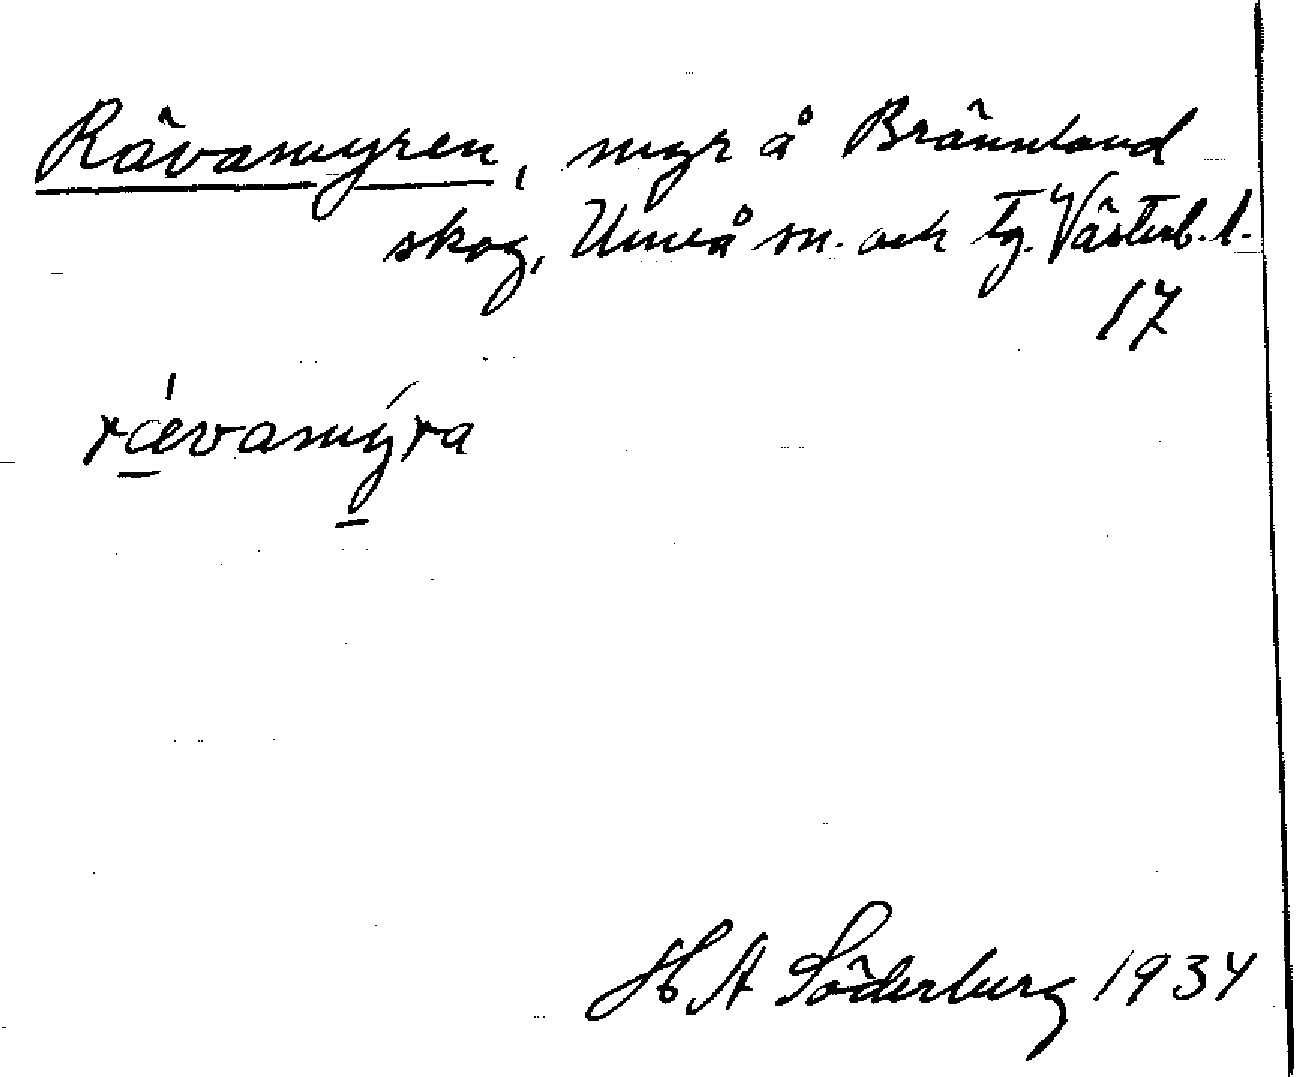 Rävamyren, myr å Brännland
skog, Umeå sn. och tg. Västerb. l.
17
rævamýra
H A Söderberg 1934